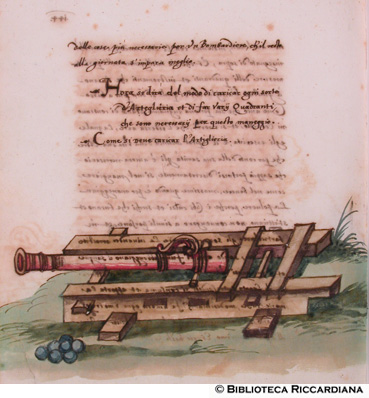 Delle cose più necessarie per Un Bombardiero, ch'el resto
alla giornata s'impara meglio.
Hora si dirà del modo di caricar ogni sorte
d'Arteglieria et di far varij Quadranti
che sono necessarij per questo maneggio.
Come si deve caricar l'Artiglieria.
© BIBLIOTECA RICCARDIANA